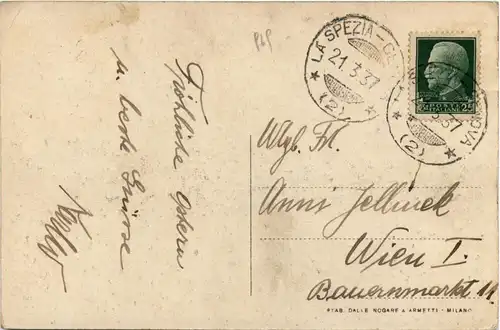 Fröhliche Ostern
u. beste Grüsse
LA SPEZIA - GE
21.3.37
(2)
NOVA
3.37
(2)
Wgb. Frl.
Anni Jellinek
Wien I.
Bauernmarkt 11
STAB. DALLE NOGARE & ARMETTI - MILANO